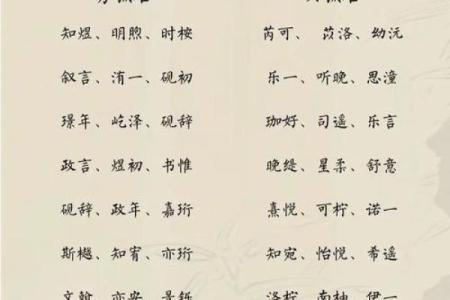 知煜、明煦、时桉 芮可、苡洛、幼沅
叙言、洧一、砚初 乐一、听晚、思潼
璟年、屹泽、砚辞 珈好、司遥、乐言
政言、煜初、书惟 晚缇、星柔、舒意
砚辞、政年、嘉珩 熹悦、可柠、诺一
斯樾、知宥、亦珩 知宛、怡悦、希遥
文翰、亦安、景铄 洛柠、南柚、伊一